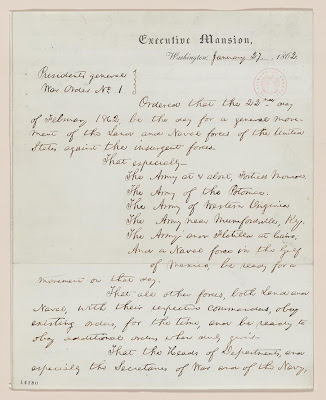 Executive Mansion,
Washington, January 27, 1862.
President's general
War Order No 1
Ordered that the 22nd day
of February 1862, be the day for a general move-
ment of the Land and Naval forces of the United
States against the insurgent forces.
That especially—
The Army at & about, Fortress Monroe.
The Army of the Potomac.
The Army of Western Virginia
The Army near Munfordsville, Ky.
The Army and Flotilla at Cairo.
And a Naval force in the Gulf
of Mexico, be ready for a
movement on that day.
That all other forces, both Land and
Naval, with their respective commanders, obey
existing orders, for the time, and be ready to
obey additional orders when duly given.
That the Heads of Departments, and
especially the Secretaries of War and of the Navy,
14180